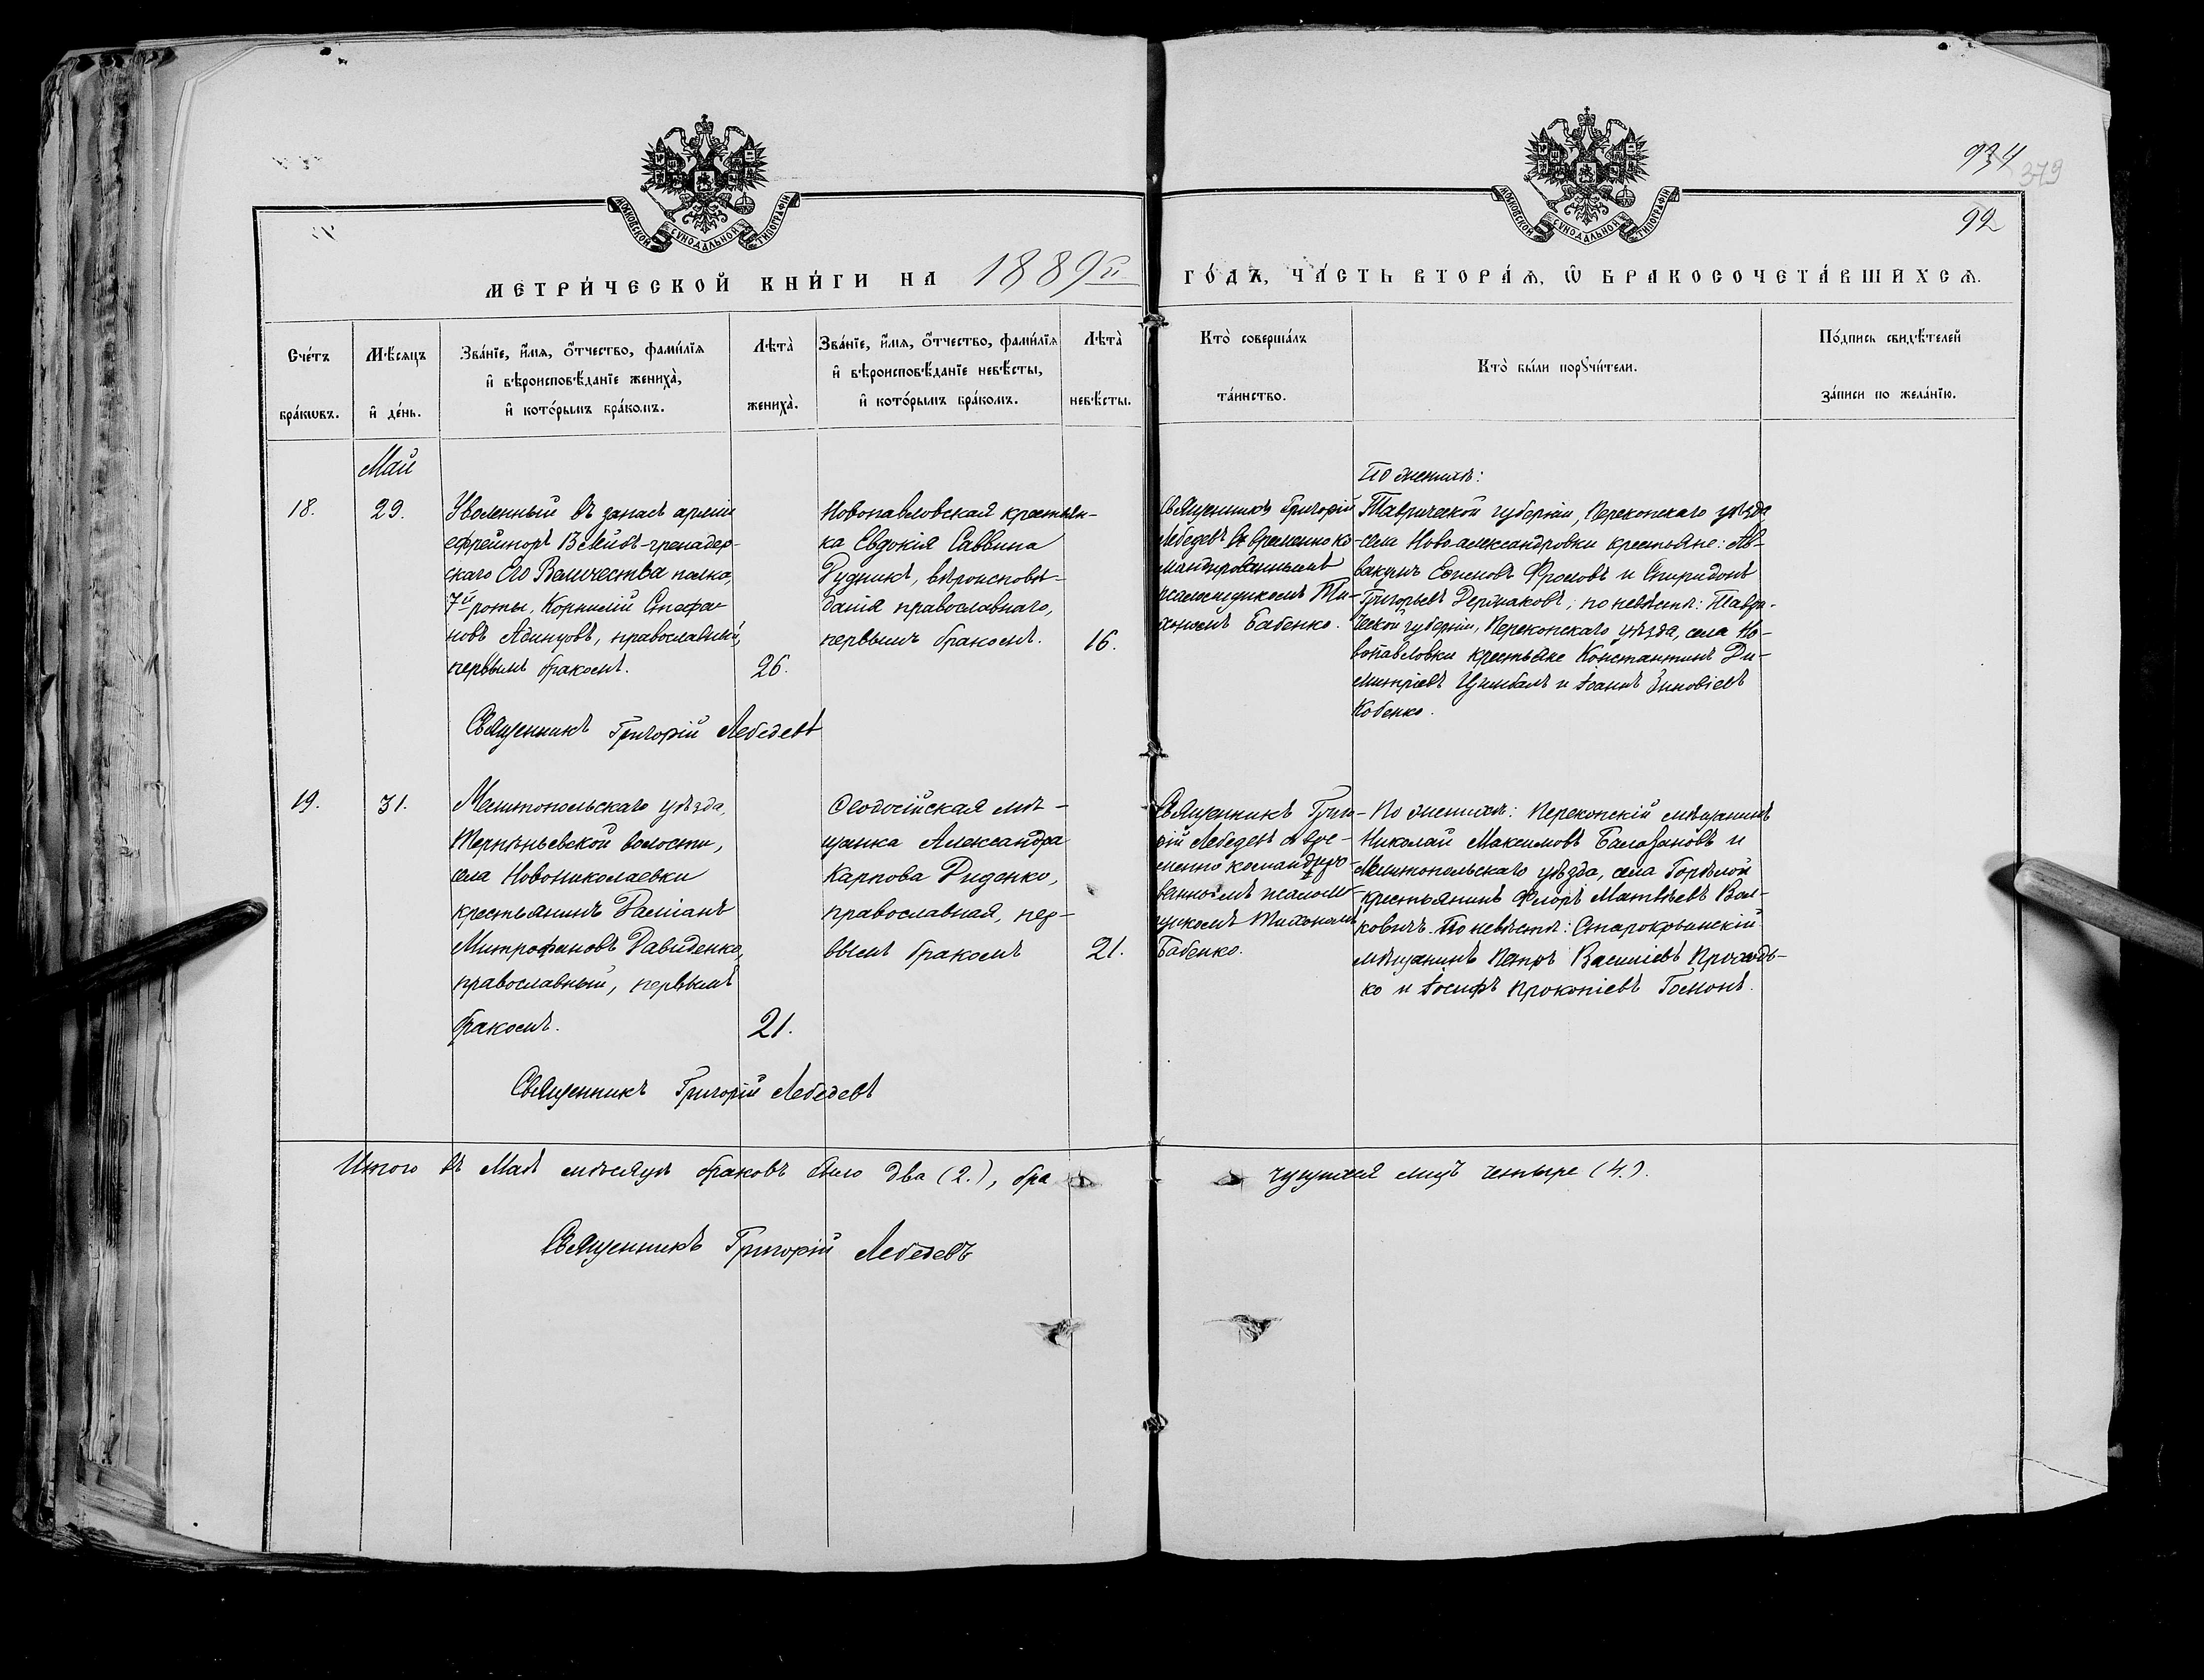 934
379
92
МОСКОВСКОЙ СУНОДАЛЬНОЙ ТИПОГРАФІИ
МОСКОВСКОЙ СУНОДАЛЬНОЙ ТИПОГРАФІИ
МЕТРИ́ЧЕСКОЙ КНИ́ГИ НА 1889й ГО́ДЪ, ЧА́СТЬ ВТОРА́Ѧ, Ѽ БРАКОСОЧЕТА́ВШИХСѦ.
Сче́тъ бра́кѡвъ.
Мѣ́сяцъ и де́нь.
Зва́нїе, и́мя, ѻ́тчество, фами́лїя
и вѣроисповѣ́данїе жениха̀,
и кото́рымъ бра́комъ.
Лѣта̀ жениха̀.
Зва́нїе, и́мя, ѻ́тчество, фами́лїя
и вѣроисповѣ́данїе невѣ́сты,
и кото́рымъ бра́комъ.
Лѣта̀ невѣ́сты.
Кто̀ соверша́лъ та́инство.
Кто̀ бы́ли порꙋчи́тели.
По́дпись свидѣ́телей за́писи по жела́нїю.
Май
18.
29.
Уволенный въ запасъ арміи
ефрейторъ Лейбъ-гренадер-
скаго Его Величества полка,
7й роты, Корнилій Стефа-
новъ Адинцовъ, православный,
первымъ бракомъ.
26.
Новопавловская крестьян-
ка Евдокія Саввина
Рудникъ, вѣроисповѣ-
данія православнаго,
первымъ бракомъ.
16.
Священникъ Григорій
Лебедевъ съ временно ко-
мандированнымъ
псаломщикомъ Ти-
хономъ Бабенко.
По женихѣ:
Таврической губерніи, Перекопскаго уѣзда
села Ново-александровки крестьяне: Ав-
вакумъ Евгеновъ Фроловъ и Спиридонъ
Григорьевъ Держаковъ; по невѣстѣ: Таври-
ческой губерніи, Перекопскаго уѣзда, села Но-
вопавловки крестьяне Константинъ Ди-
митріевъ Цымбалъ и Іоаннъ Зиновіевъ
Кобенко.
Священникъ Григорій Лебедевъ
19.
31.
Мелитопольскаго уѣзда,
Терпѣньевской волости,
села Новониколаевки
крестьянинъ Даміанъ
Митрофановъ Давиденко,
православный, первымъ
бракомъ.
21.
Ѳеодосійская мѣ-
щанка Александра
Карпова Диденко,
православная, пер-
вымъ бракомъ
21.
Священникъ Григо-
рій Лебедевъ с вре-
менно командиро-
ваннымъ псалом-
щикомъ Тихономъ
Бабенко.
По женихѣ: Перекопскій мѣщанинъ
Николай Максимовъ Балабановъ и
Мелитопольскаго уѣзда, села Горѣлой
крестьянинъ Флоръ Матвѣевъ Вол-
ковичъ. По невѣстѣ: Старокрымскій
мѣщанинъ Петръ Василіевъ Проходь-
ко и Іосифъ Прокопіевъ Гомонъ.
Священникъ Григорій Лебедевъ
Итого въ Маѣ мѣсяцѣ браковъ было два (2.), бра чущихся лицъ четыре (4.).
Священникъ Григорій Лебедевъ